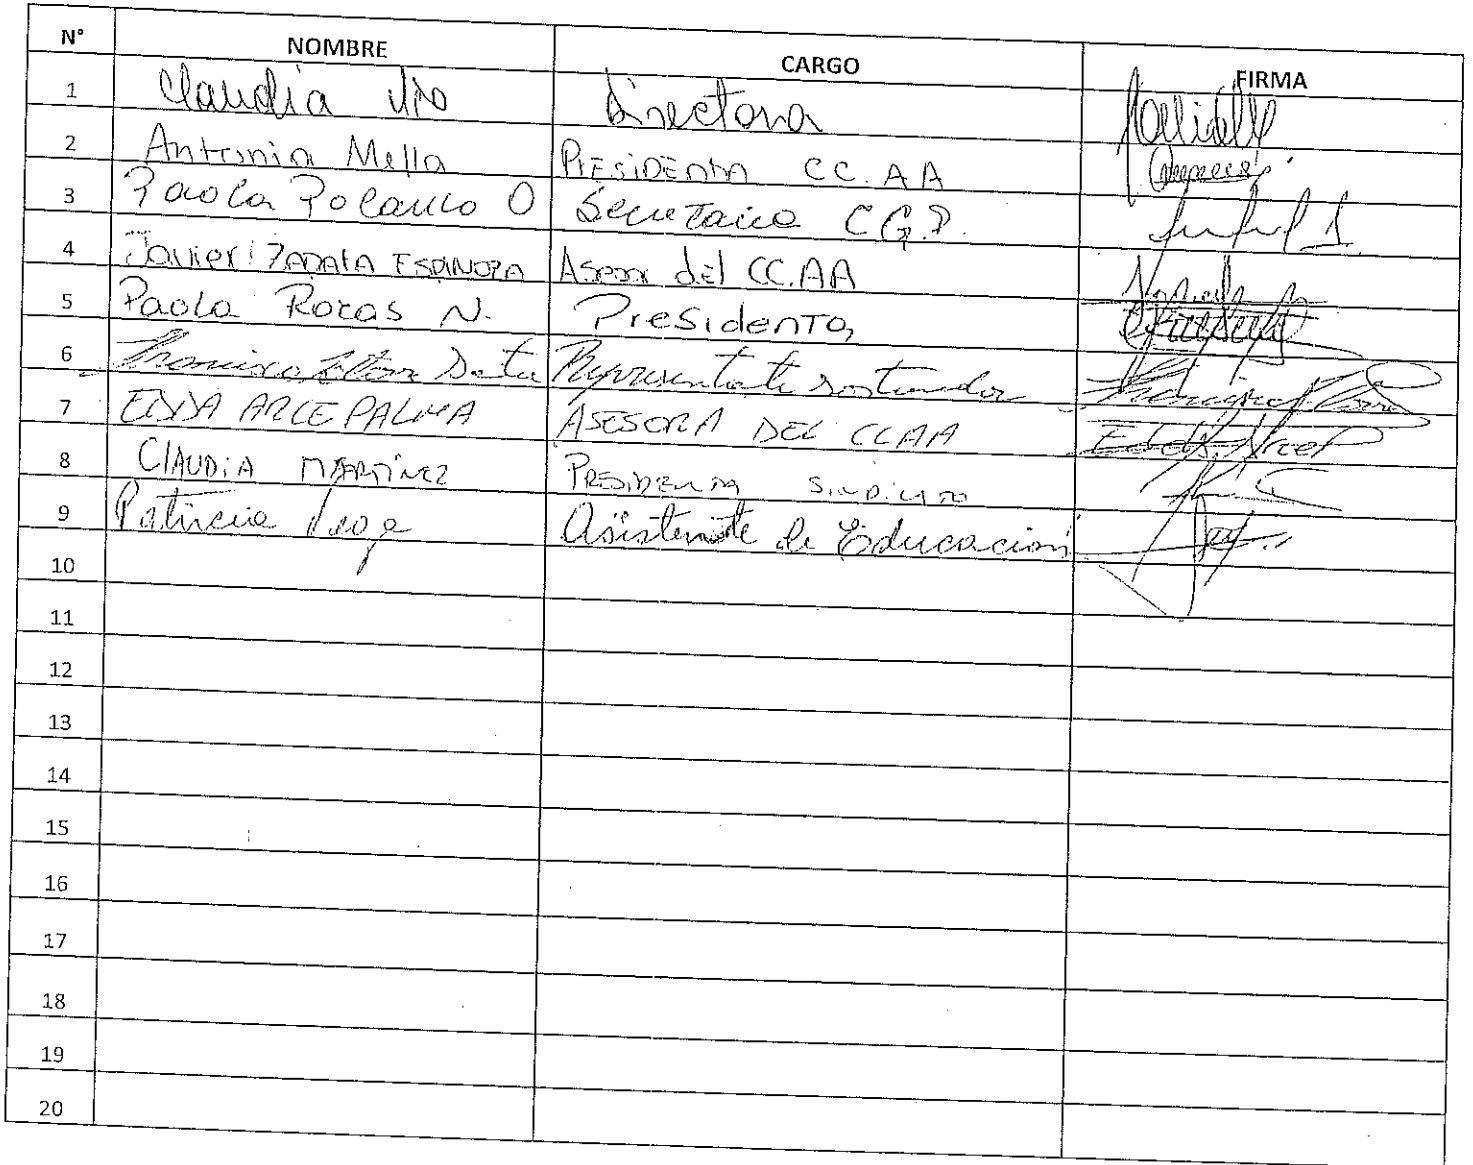 N° NOMBRE CARGO FIRMA
1 Claudia Directora
2 Antonia Mella PRESIDENTA CC.AA
3 Paola Polanco O Secretaria C.G.P.
4 Javier ZAPATA ESPINOZA Asesor del CC.AA
5 Paola Rozas N. Presidenta
6 Representante sostenedor
7 EDDA ARCE PALMA ASESORA DEL CCAA
8 CLAUDIA MARTÍNEZ PRESIDENTA SINDICATO
9 Patricia Vega Asistente de Educación
10
11
12
13
14
15
16
17
18
19
20